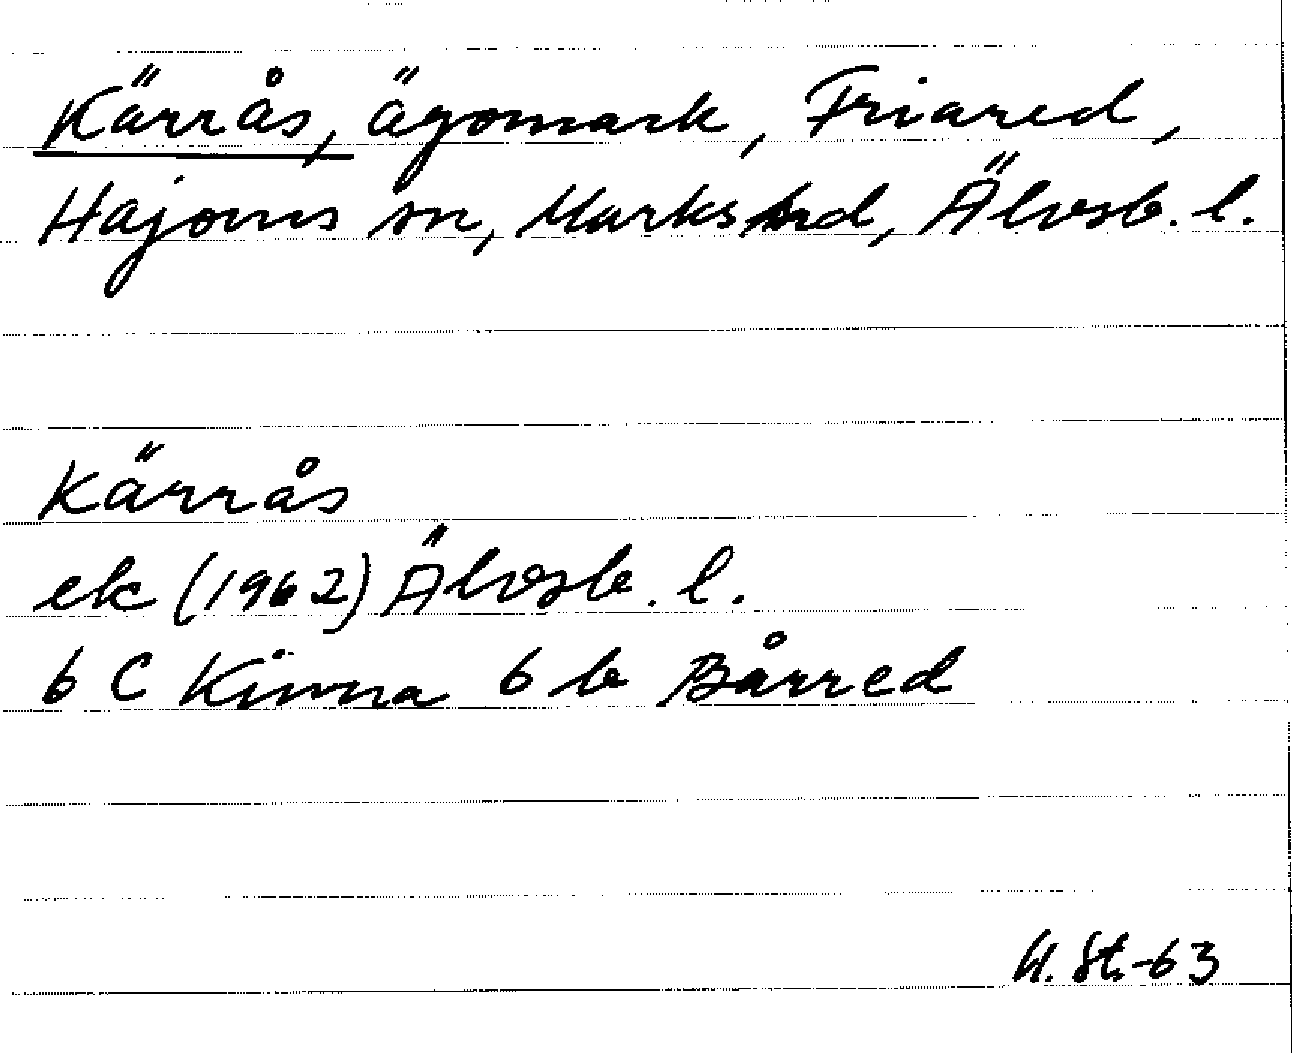 Kärrås, ägomark, Friared,
Hajoms sn, Marks hd, Älvsb. l.
Kärrås
ek (1962) Älvsb. l.
6 C Kinna 6 b Bårred
St.-63